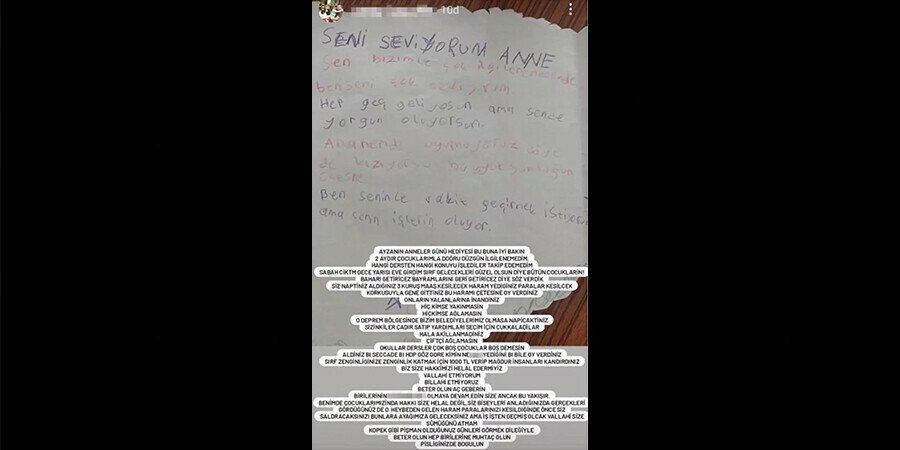 10d
SENİ SEVİYORUM ANNE
Sen bizimle çok
çok seviyorum
Hep geç geliyosun ama sende
yorgun oluyorsun.
Ben seninle vakit geçirmek
ama senin işlerin oluyor.
AYZANIN ANNELER GÜNÜ HEDİYESİ BU BUNA İYİ BAKIN
2 AYDIR ÇOCUKLARIMLA DOĞRU DÜZGÜN İLGİLENEMEDİM,
HANGİ DERSTEN HANGİ KONUYU İŞLEDİLER TAKİP EDEMEDİM
SABAH CİKTM GECE YARISI EVE GİRDİM SIRF GELECEKLERİ GÜZEL OLSUN DİYE BÜTÜN COCUKLARIN!
BAHARI GETİRİCEZ BAYRAMLARINI GERİ GETİRİCEZ DİYE SÖZ VERDİK
SİZ NAPTİNİZ ALDIĞINIZ 3 KURUŞ MAAŞ KESİLECEK HARAM YEDİGİNİZ PARALAR KESİLCEK
KORKUSUYLA GENE GİTTİNİZ BU HARAMİ ÇETESİNE OY VERDİNİZ
ONLARIN YALANLARINA İNANDİNİZ
HİÇ KİMSE YAKINMASIN
HİCKİMSE AĞLAMASIN
O DEPREM BÖLGESİNDE BİZİM BELEDİYELERİMİZ OLMASA NAPİCAKTİNİZ
SİZİNKİLER ÇADIR SATIP YARDIMLARI SEÇİM İÇİN CUKKALADİLAR
HALA AKILLANMADİNİZ
ÇİFTÇİ AĞLAMASIN
OKULLAR DERSLER ÇOK BOŞ ÇOCUKLAR BOŞ DEMESİN
ALDİNİZ Bİ SECCADE Bİ HDP GÖZ GÖRE KİMİN NE YEDİĞİNİ Bİ BİLE OY VERDİNİZ
SIRF ZENGİNLİGİNİZE ZENGİNLİK KATMAK İÇİN 1000 TL VERİP MAĞDUR İNSANLARI KANDIRDINIZ
BİZ SİZE HAKKİMİZİ HELAL EDERMİYİZ
VALLAHİ ETMİYORUM
BİLLAHİ ETMİYORUZ
BETER OLUN AÇ GEBERİN
BİRİLERİNİN OLMAYA DEVAM.EDİN SİZE ANCAK BU YAKIŞIR.
BENİMDE ÇOCUKLARIMIZINDA HAKKI SİZE HELAL DEĞİL,SİZ BİSEYLERİ ANLADIĞINIZDA GERÇEKLERİ
GÖRDÜĞÜNÜZ DE O HEYBEDEN GELEN HARAM PARALARINIZI KESİLDİĞİNDE ÖNCE SİZ
SALDRACAKSINIZI BUNLARA AYAĞIMIZA GELECEKSİNİZ AMA İŞ İŞTEN GEÇMİŞ OLCAK VALLAHİ SİZE
SÜMÜĞÜNÜ ATMAM
KOPEK GİBİ PİŞMAN OLDUĞUNUZ GÜNLERİ GÖRMEK DİLEĞİYLE
BETER OLUN HEP BİRİLERİNE MUHTAÇ OLUN
PİSLİGİNİZDE BOGULUN